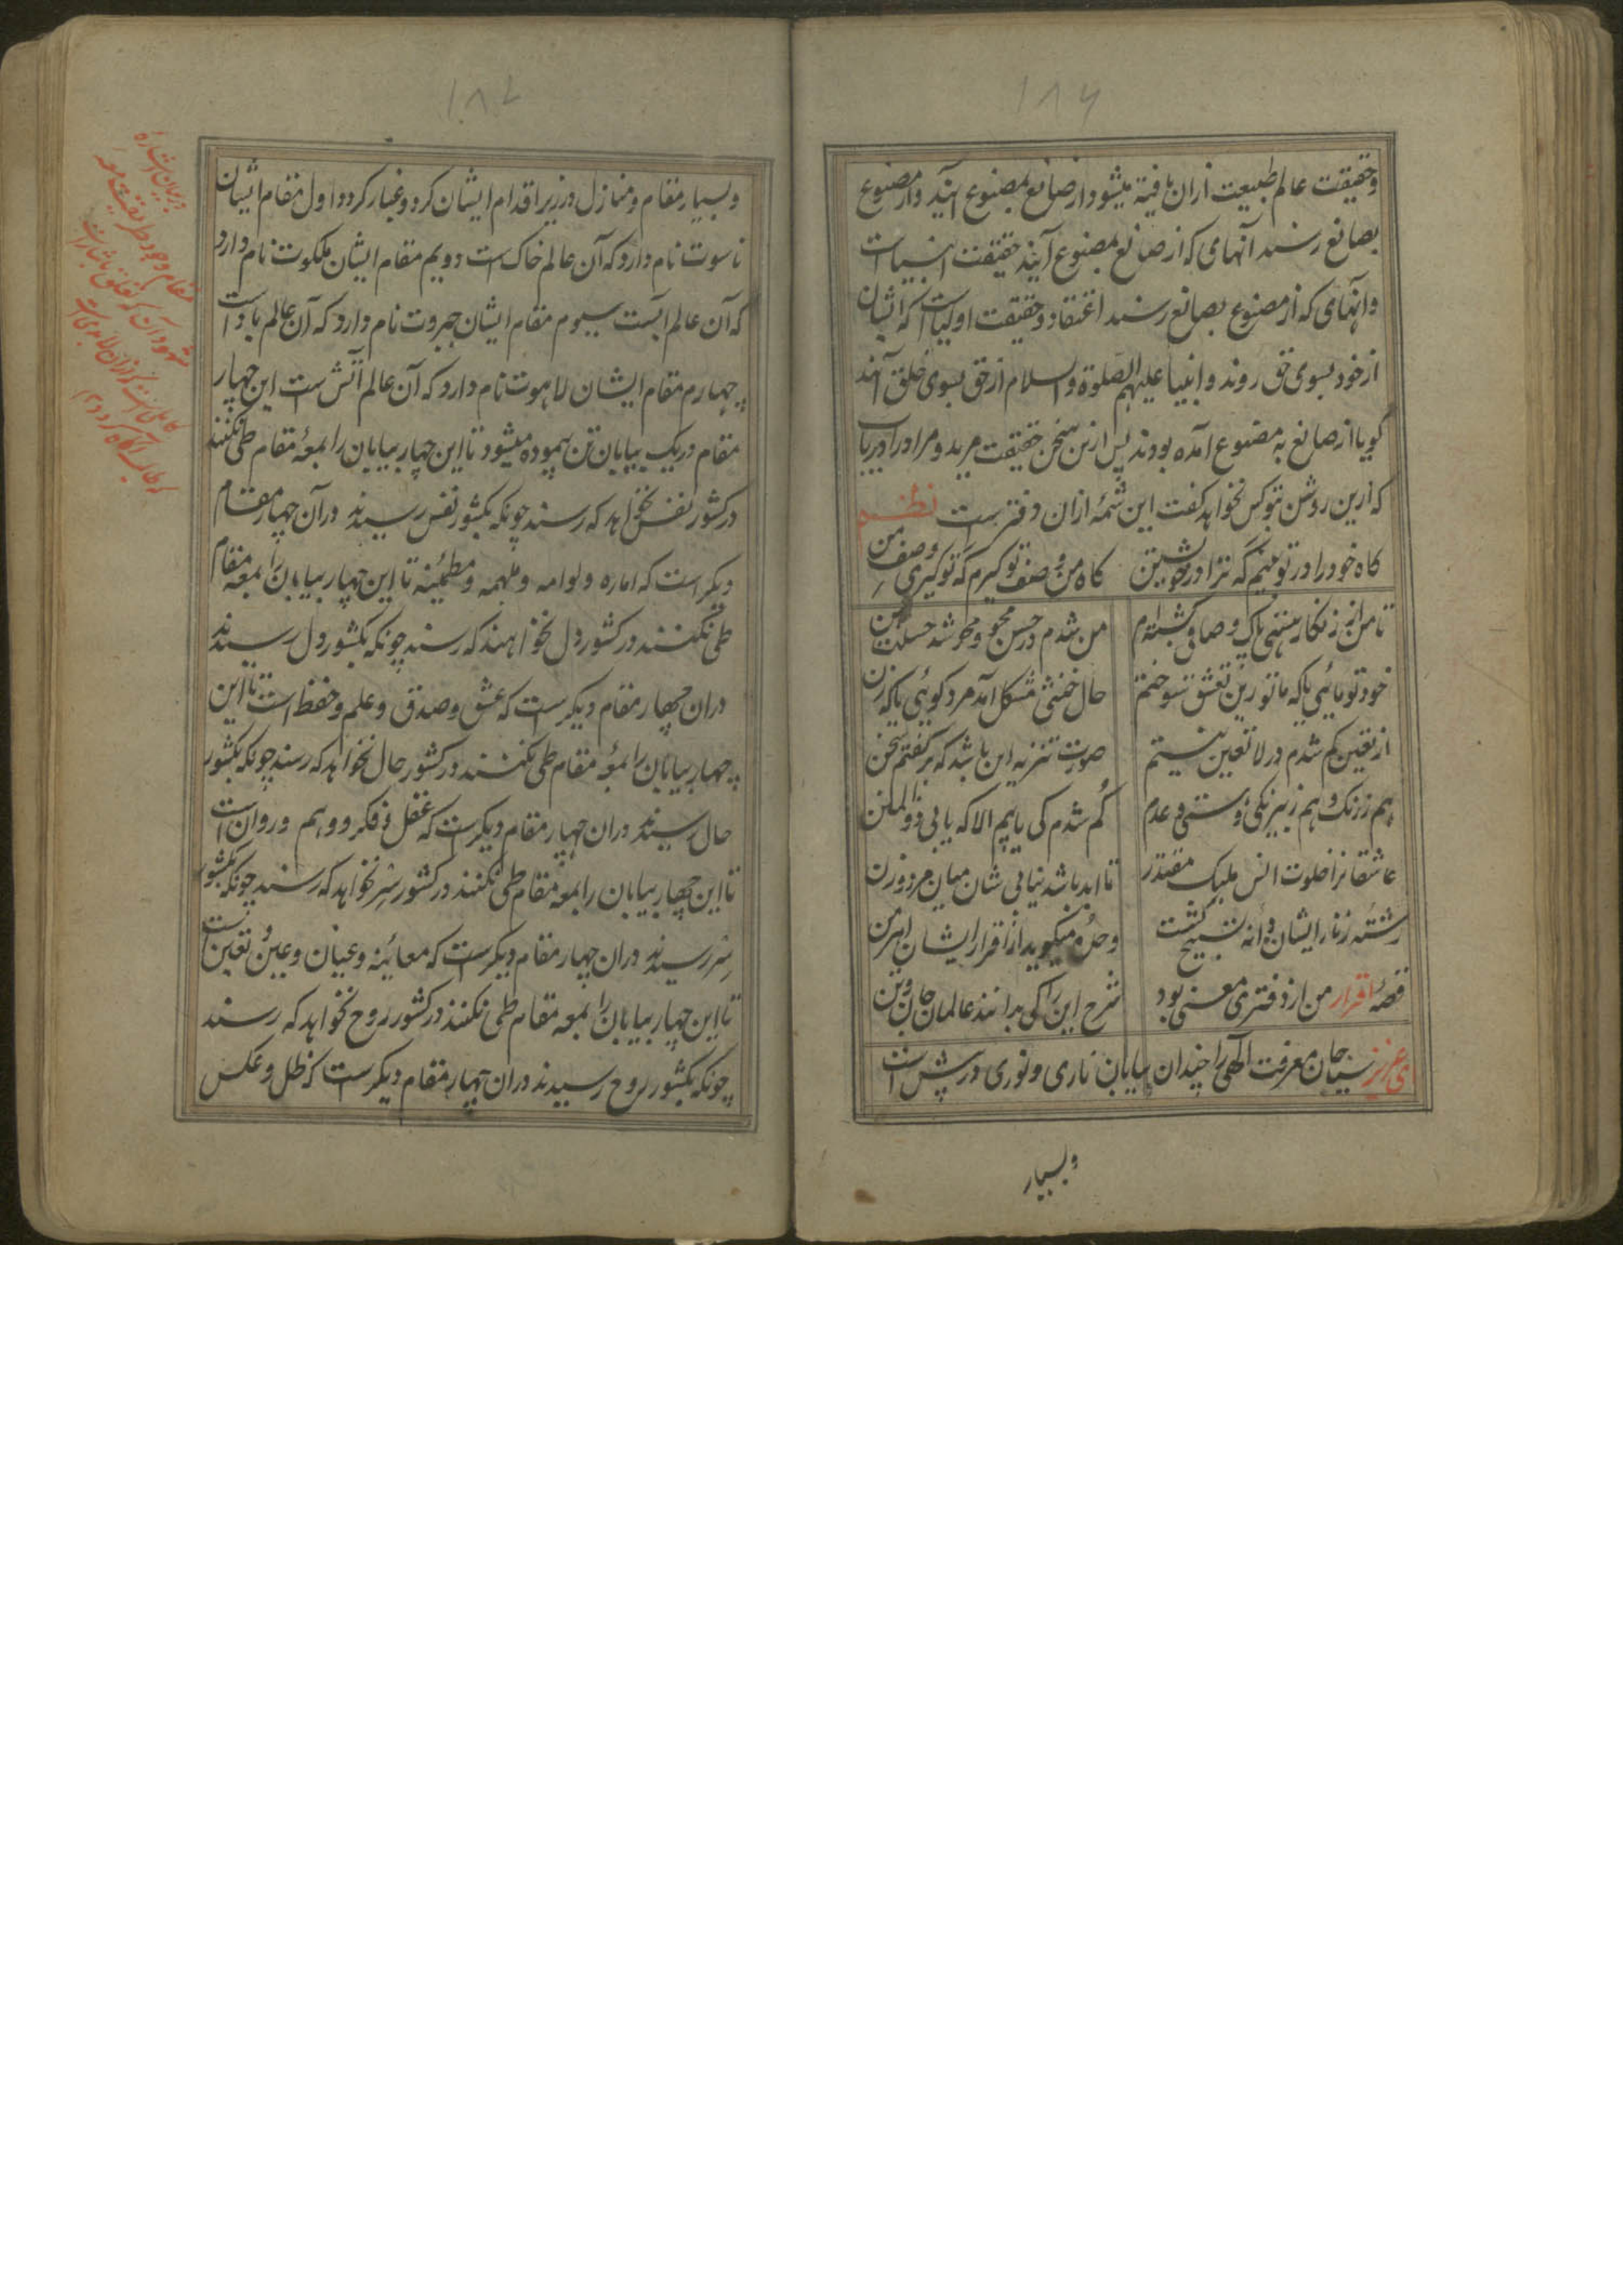 ۱۸۶
وحقیقت عالم طبیعت ازان یافته میشود واز صانع بمصنوع آیند واز مصنوع
بصانع رسند آنهای که از صانع بمصنوع آیند حقیقت انبیا است
وانهای که از مصنوع بصانع رسند اعتقاد وحقیقت اولیا است که ایشان
از خود بسوی حق روند وانبیا علیهم الصلوة والسلام از حق بسوی خلق آمد
گویا از صانع به مصنوع آمده بودند پس ازین سخن حقیقت مرید و مراد را دریاب
که ازین روشن تر کس نخواهد گفت این شمه ازان دفتر است نظم
گاه خود را در تو بینم گه ترا در خویشتن گاه من وصف تو گیرم گه تو گیری وصف من
تا من از زنگار هستی پاک و صافی گشته‌ام من شدم در حسن محو و محو شد حسنت بمن
خود تو مائی یا که ما تو زین تعشق سوختم حال خنثی مشکل آمد مرد گوئی یا که زن
از تعین گم شدم در لا تعین نیستم صورت تنزیه این باشد که برگفتم سخن
هم ز رنگ و هم ز بیرنگی و هستی و عدم گم شدم کی یابیم الا که یابی ذوالمنن
عاشقانرا خلوت انس ملیک مقتدر تا ابد باشد نیابی شان میان مرد و زن
رشته زنار ایشان دانه تسبیح گشت وحده میگوید از اقرار ایشان اهرمن
قصه اقرار من از دفتری معنی بود شرح این را کی بدانند عالمان جان وتن
ای عزیز سیاحان معرفت الهی را چندان بیابان ناری و نوری در پیش است
وبسیار
۱۸۷
وبسیار مقام و منازل در زیر اقدام ایشان گرد و غبار گردد اول مقام ایشان
ناسوت نام دارد که آن عالم خاک است دویم مقام ایشان ملکوت نام دارد
که آن عالم آبست سیوم مقام ایشان جبروت نام دارد که آن عالم باد است
چهارم مقام ایشان لاهوت نام دارد که آن عالم آتش است این چهار
مقام در یک بیابان تن پیموده میشود تا این چهار بیابان را بمعه مقام طی نکنند
در کشور نفس نخواهد که رسند چونکه بکشور نفس رسیدند درآن چهار مقام
دیگر است که اماره و لوامه و ملهمه و مطمئنه تا این چهار بیابان را بمعه مقام
طی نکنند در کشور دل نخواهند که رسند چونکه بکشور دل رسیدند
دران چهار مقام دیگر است که عشق و صدق و علم و حفظ است تا این
چهار بیابان را بمعه مقام طی نکنند در کشور حال نخواهد که رسند چونکه بکشور
حال رسیدند دران چهار مقام دیگر است که عقل و فکر و وهم و روان است
تا این چهار بیابان را بمعه مقام طی نکنند در کشور سر نخواهد که رسند چونکه بکشور
سر رسیدند دران چهار مقام دیگر است که معائینه و عیان و عین و تعین است
تا این چهار بیابان را بمعه مقام طی نکنند در کشور روح نخواهد که رسند
چونکه بکشور روح رسیدند دران چهار مقام دیگر است که ظل و عکس
در بیان
مقام وجود
شهود آن که تعلق